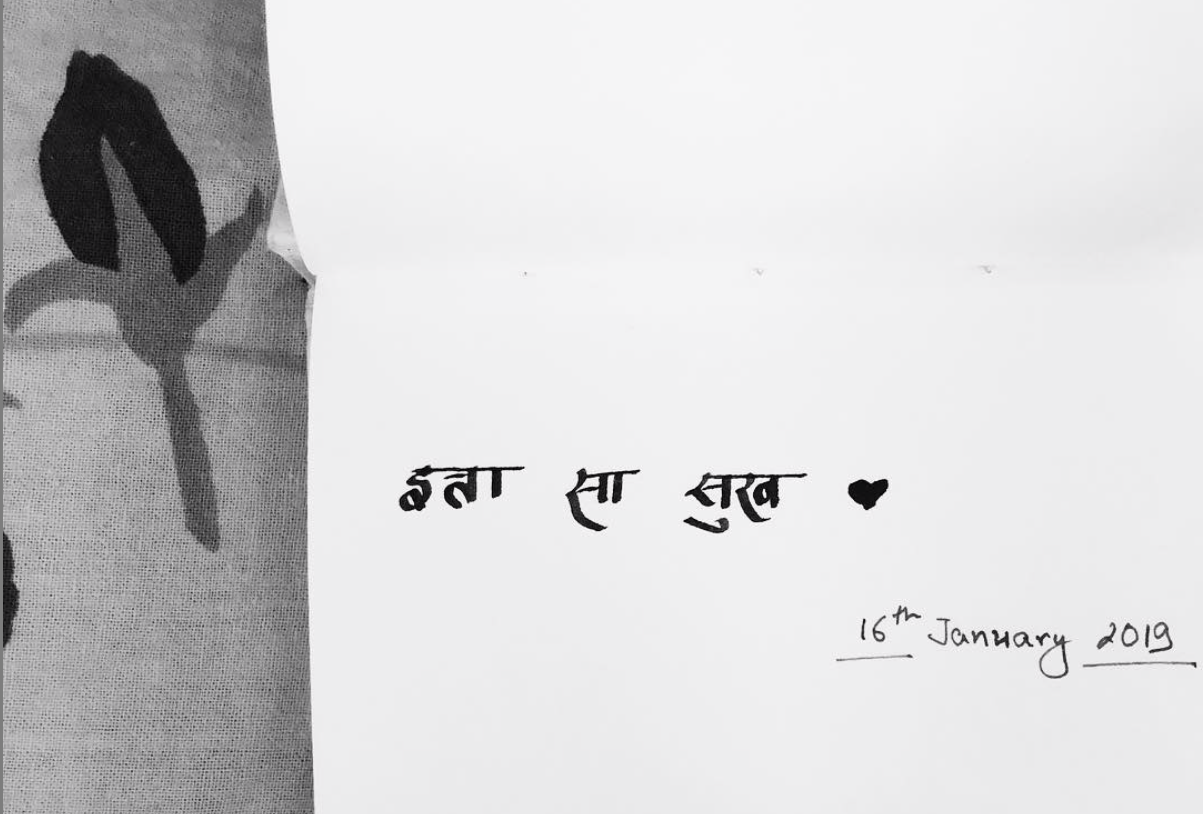 इता सा सुख ♥
16th January 2019